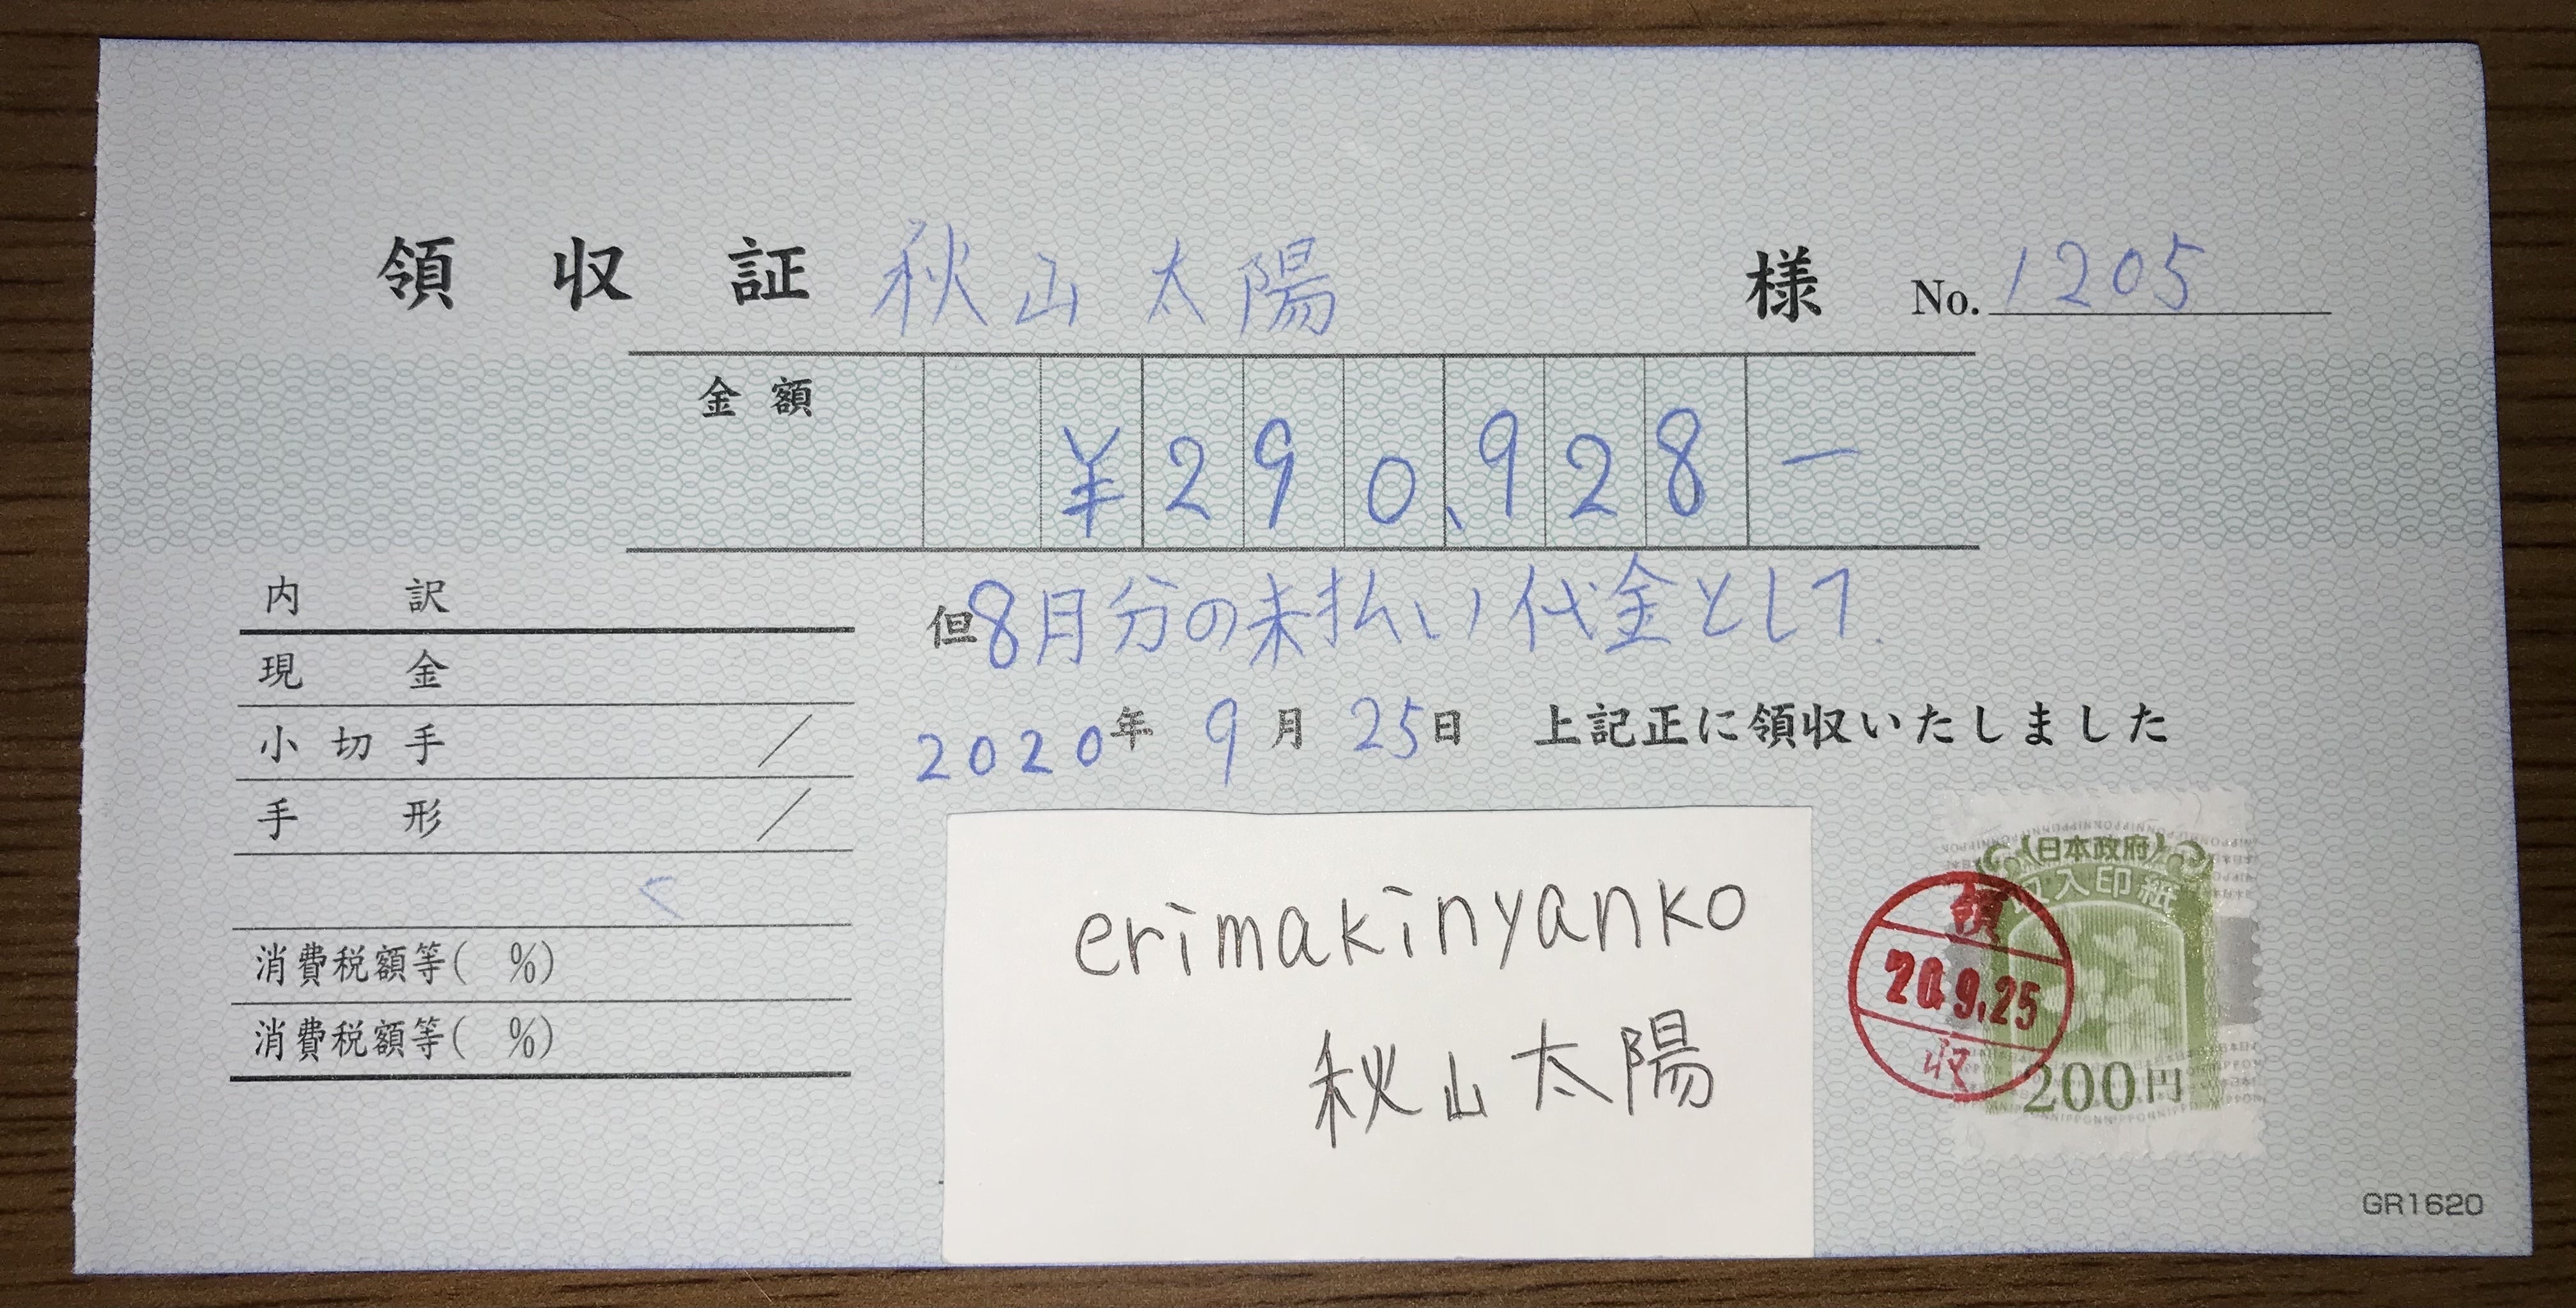 領収証 秋山太陽 様 No. 1205
金額 ¥290,928-
内訳
但 8月分の未払い代金として.
現金
2020年 9月 25日 上記正に領収いたしました
小切手 /
手形 /
消費税額等( %)
消費税額等( %)
erimakinyanko
秋山太陽
日本政府
収入印紙
200円
領
20.9.25
収
GR1620